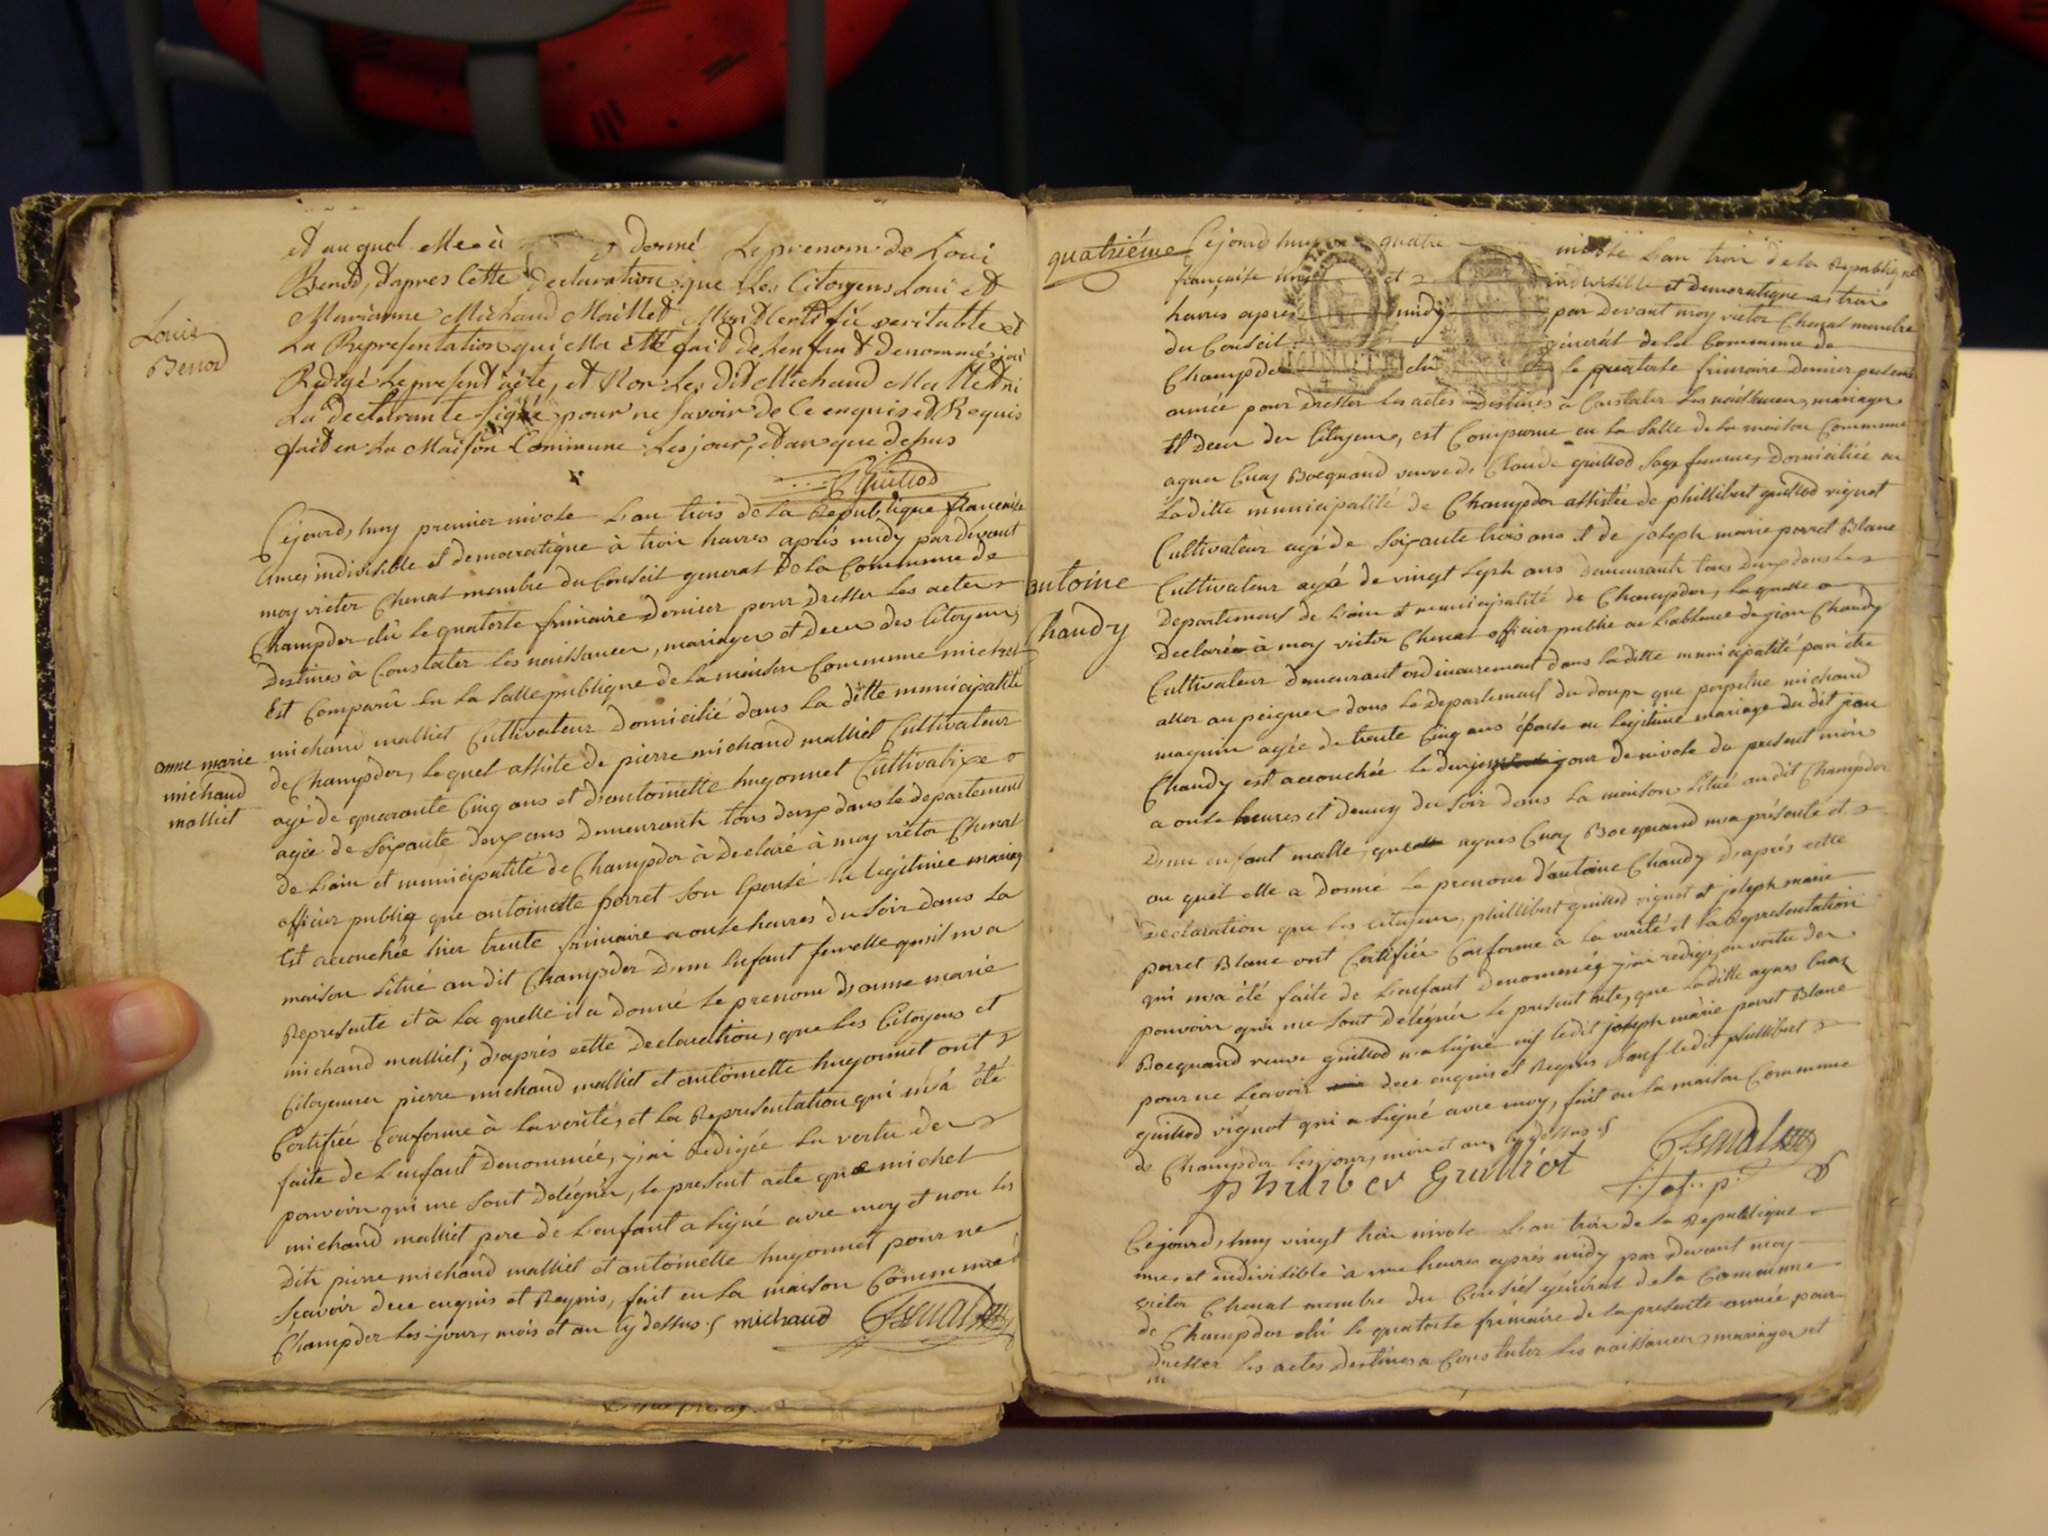 et auquel elle à donné le prenom de Loui
Benod, dapres cette declaration que les Citoyens Loui et
Marianne Michaud Maillet Mon Certifié veritable et
La Representation qui Ma etté fait de lenfant denommé, jai
Redigé le present acte, et Non les dit Michaud Malliet ni
La declarante signé pour ne savoir de ce enquis et Requis
fait en la Maison Commune les jour, et an que desus
Louis
Benod
Cejourd,huy premier nivose L'an trois de la Republique francaise
une, indivisible et democratique à trois heures après midy par devant
moy victor Chenat membre du Conseil general de la Commune de
Champdor élû le quatorse frimaire dernier pour dresser les actes
Destinés à Constater les naissances, mariages et deces des Citoyens,
Est Comparû en la salle publique de la maison Commune michel
michaud malliet Cultivateur Domicilié dans la ditte municipalité
de Champdor, lequel assisté de pierre michaud malliet Cultivateur
agé de quarante Cinq ans et d'antoinette hugonnet Cultivatrixe
agée de soixante deux ans Demeurants tous deux dans le departement
de L'ain et municipalité de Champdor à declaré à moy victor Chenat
officier publiq que antoinette perret son Epouse en legitime mariag
Est accouchée hier trente frimaire a onse heures du soir dans la
maison situé au dit Champdor D'un Enfant femelle qu'il m'a
Representé et à la quelle il a donné le prenom d'anne marie
michaud malliet; d'après cette Declaration, que les Citoyens et
Citoyennes pierre michaud malliet et antoinette hugonnet ont
Certifiée Conforme à la verité, et la Representation qui m'a été
faite de L'enfant denommée, j'ai redigée En vertu des
pouvoirs qui me sont delégués, le present acte que michel
michaud malliet pere de L'enfant a signé avec moy et non les
Dits pierre michaud malliet et antoinette hugonnet pour ne
sçavoir dece enquis et Requis, fait en la maison Commune
Champdor les jour, mois et an cy dessus. michaud Chenat
anne marie
michaud
malliet
quatriéme
Cejourd'huy quatre nivose L'an troi de la Republique
française une et indivisible et democratique a trois
heures après midy par devant moy victor Chenat membre
du Conseil général de la Commune de
Champdor élû le quatorse frimaire dernier presente
année pour dresser les actes Destinés à Constater les naissances, mariages
et deces des Citoyens, est Comparue en la salle de la maison Commune
agnes Cuaz Bocquand veuve de Claude guillod sage femme, Domiciliée en
laditte municipalité de Champdor assistée de phillibert guillod vignot
Cultivateur agé de soixante trois ans et de joseph marie perret Blanc
Cultivateur agé de vingt sept ans demeurants tous deux dans le
Departement de L'ain et municipalité de Champdor, la quelle a
Declarée à moy victor Chenat officier public en L'absence de jean Chandy
Cultivateur demeurant ordinairement dans laditte municipalité par être
aller au peigner dans le Departement du doups que perpetue michaud
maguin agée de trente Cinq ans épouse en legitime mariage du dit jean
Chandy est accouchée le jour de nivose du present mois
a onse heures et demy du soir dans la maison situé au dit Champdor
D'un enfant malle, que agnes Cuaz Bocquand m'a présenté et
au quel elle a donné le prenom d'antoine Chandy d'après cette
Declaration que les citoyens, phillibert guillod vignot et joseph marie
perret Blanc ont Certifiés Conforme à la verité et la Representation
qui m'a été faite de L'enfant denommé, j'ai redigé, en vertu des
pouvoirs qui me sont delegués le present acte, que laditte agnes Cuaz
Bocquand veuve guillod n'a signé ni ledit joseph màrie perret Blanc
pour ne sçavoir dece enquis et Requis sauf ledit phillibert
guillod vignot qui a signé avec moy, fait en la maison Commune
de Champdor les jour, mois et an cy dessus
Philiber Gruilliot Chenat
antoine
Chandy
Cejourd,huy vingt trois nivose L'an trois de la Republique
une, et indivisible à une heures après midy par devant moy
victor Chenat membre du Conseil général de la Commune
de Champdor élû le quatorse frimaire de la presente année pour
dresser les actes destinés a Constater les naissances, mariages et